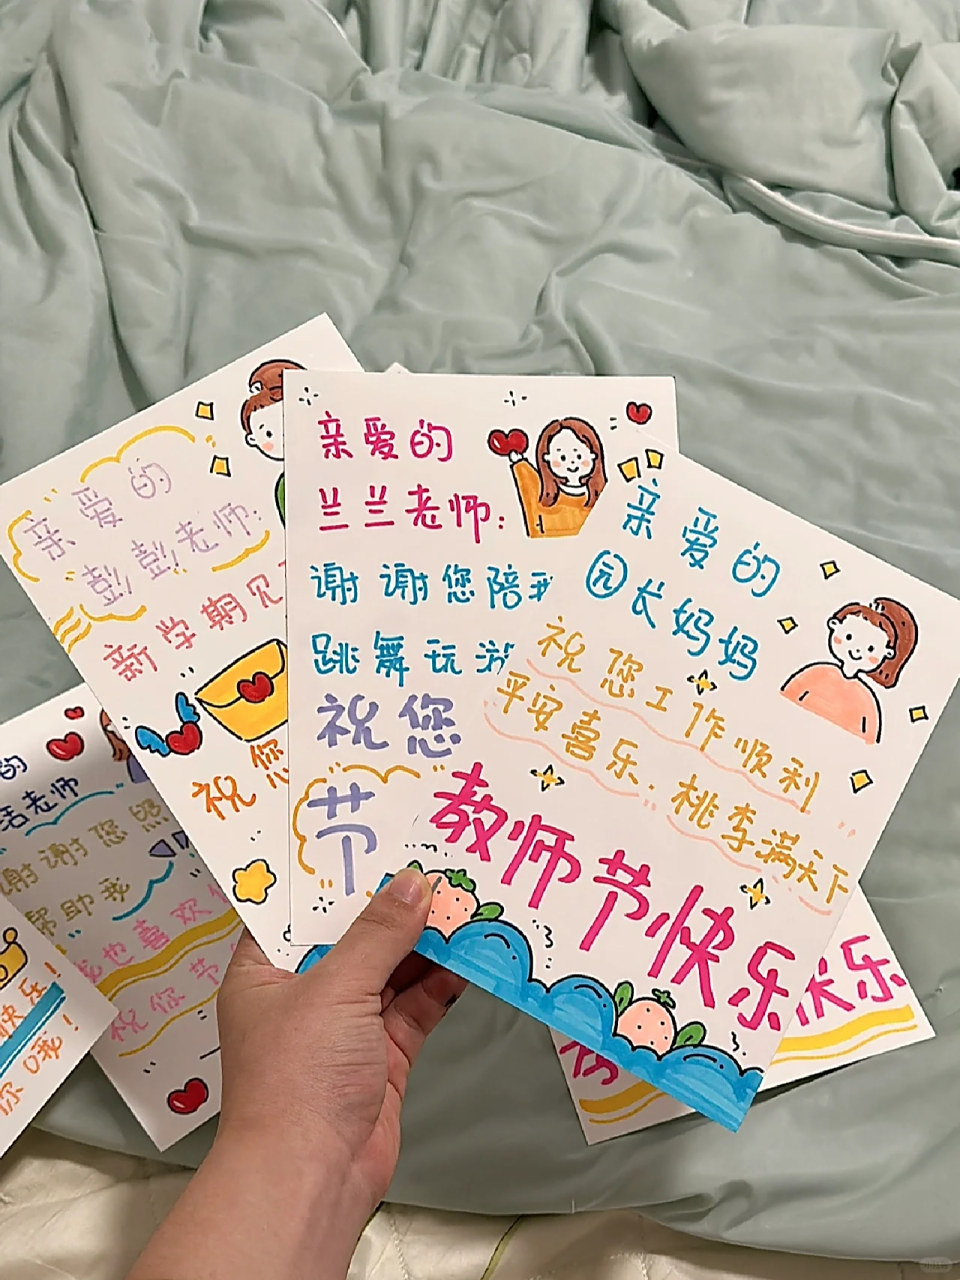 亲爱的
彭彭老师:
新学期见
祝您
亲爱的
兰兰老师:
谢谢您陪我
跳舞玩游
祝您
节
亲爱的
园长妈妈
祝您工作顺利
平安喜乐.桃李满天下
教师节快乐
的
老师
谢谢您的
帮助我
我也喜欢
祝您节
快乐!
你哦!
快乐